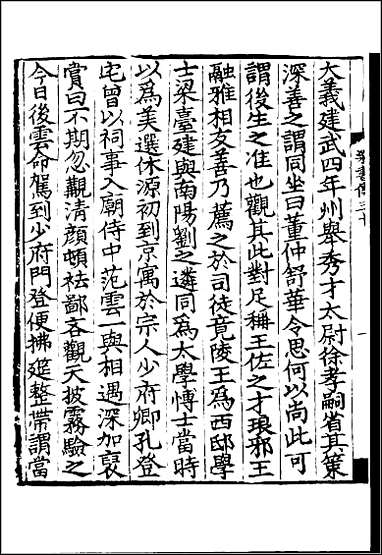 大義建武四年州舉秀才太尉徐孝嗣省其策
深善之謂同坐曰董仲舒華令思何以尚此可
謂後生之准也觀其此對足稱王佐之才琅邪王
融雅相友善乃薦之於司徒竟陵王爲西邸學
士梁臺建與南陽劉之遴同爲太學博士當時
以爲美選休源初到京寓於宗人少府卿孔登
宅曾以祠事入廟侍中范雲一與相遇深加襃
賞曰不期忽覯清顔頓祛鄙吝觀天披霧驗之
今日後雲命駕到少府門登便拂筵整帶謂當
梁書傳三十